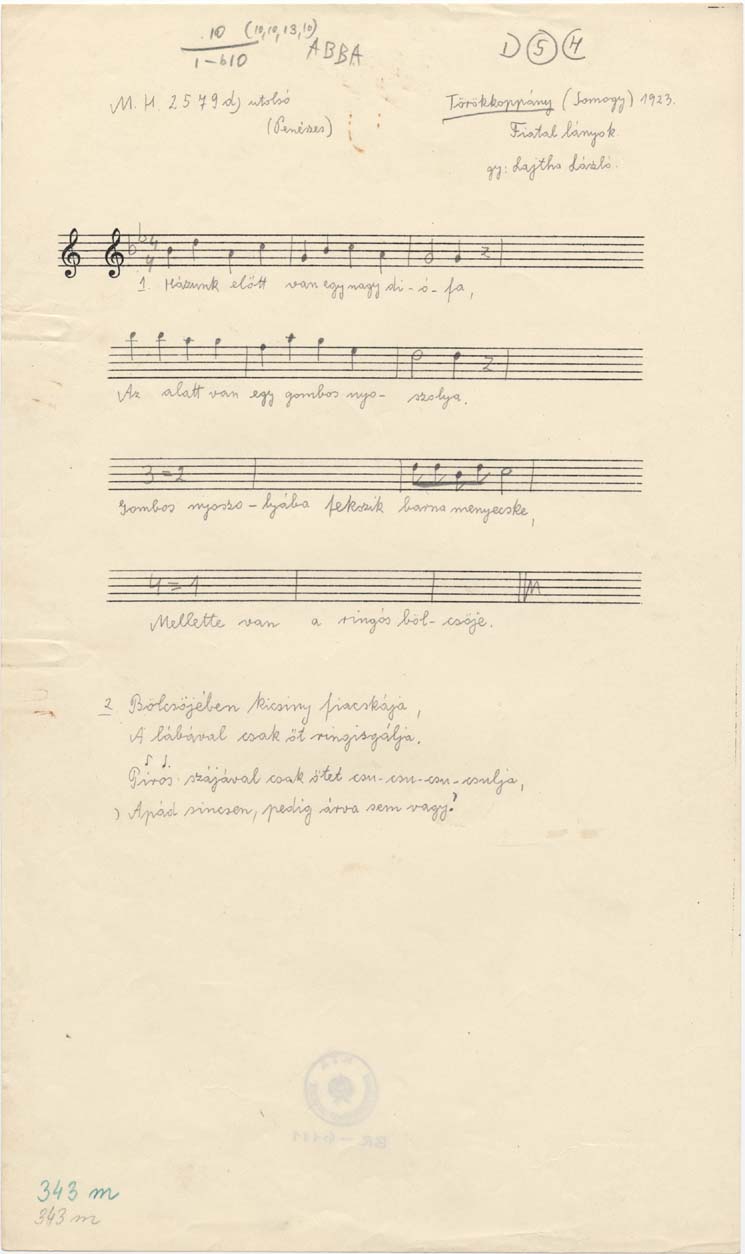 10 (10,10,13,10)
1-b10
ABBA
D 5 4
M. H. 2579 d) utolsó
(Penészes)
Törökkoppány (Somogy) 1923.
Fiatal lányok.
gy: Lajtha László.
4
4
1. Házunk előtt van egy nagy di-ó-fa,
Az alatt van egy gombos nyo- szolya.
3=2
Gombos nyoszo-lyába fekszik barna menyecske,
4=1
Mellette van a ringós böl-csője.
2 Bölcsőjében kicsiny fiacskája,
A lábával csak őt ringisgálja.
Piros szájával csak őtet csu-csu-csu-csulja,
Apád sincsen, pedig árva sem vagy?
343 m
343 m